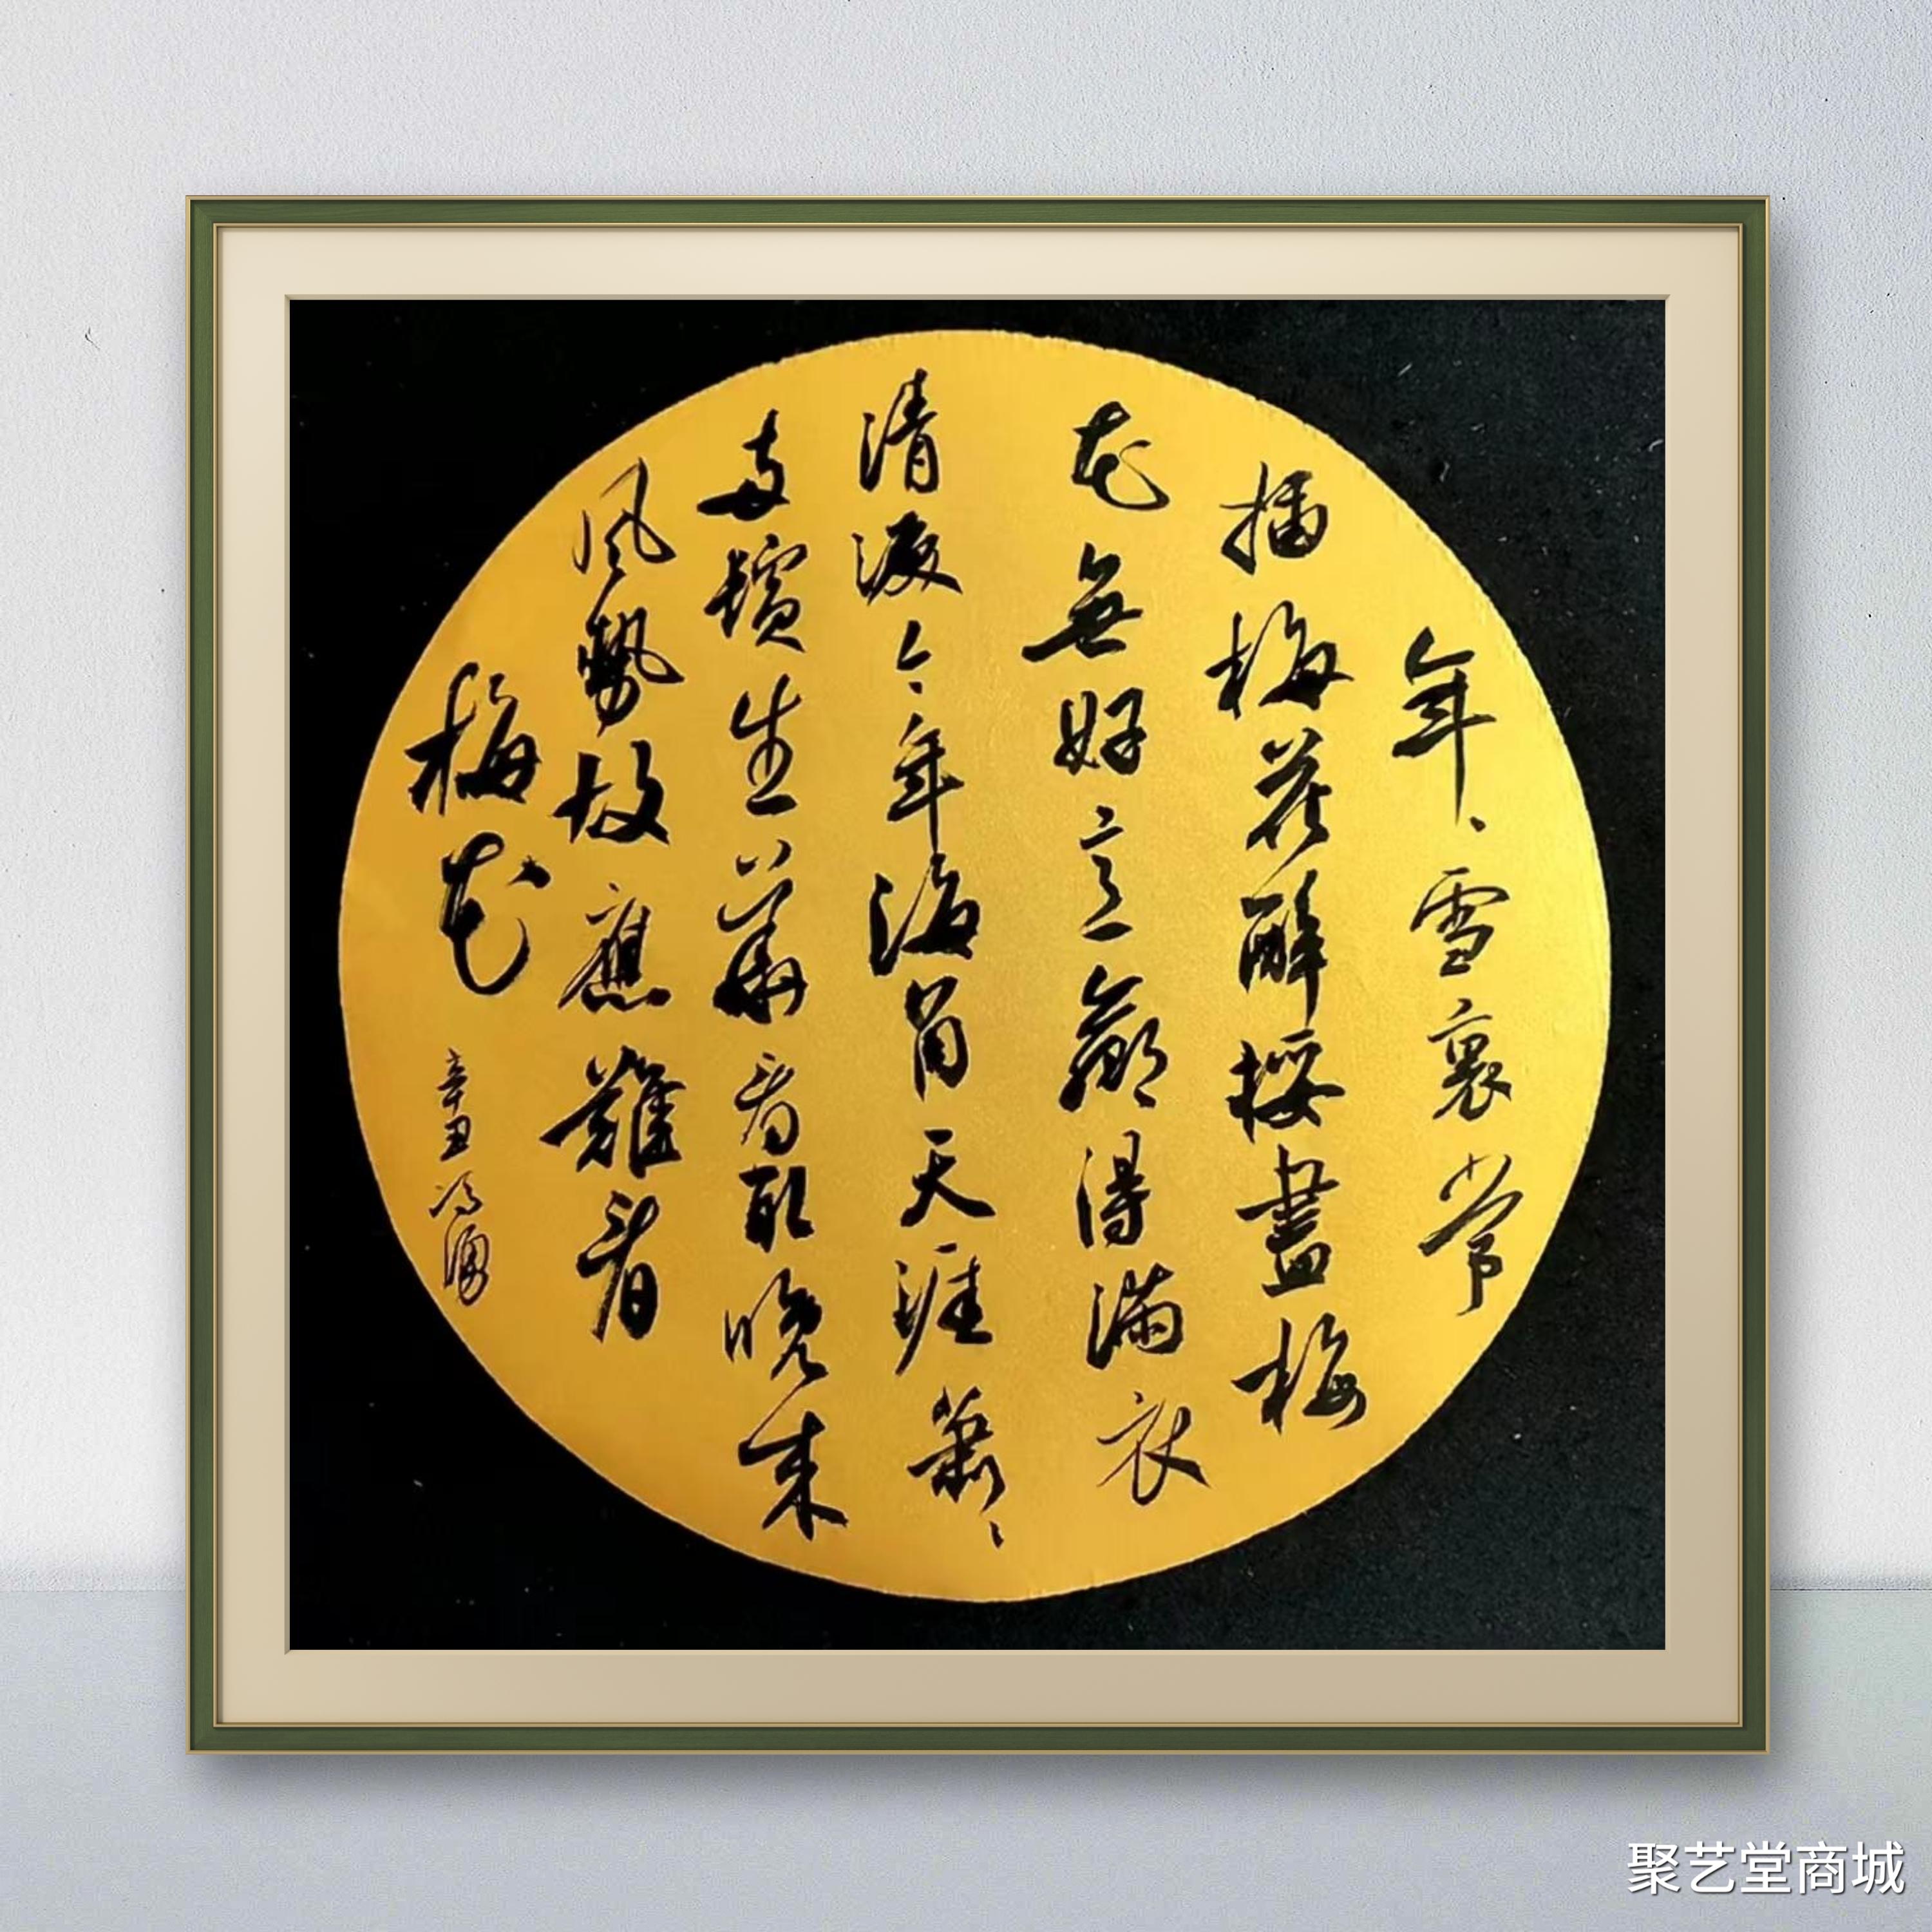 年々雪裏常
插梅花醉挼盡梅
花無好意贏得滿衣
清淚今年海角天涯蕭々
两鬢生華看取晚来
風勢故應難看
梅花
辛丑冯
聚艺堂商城